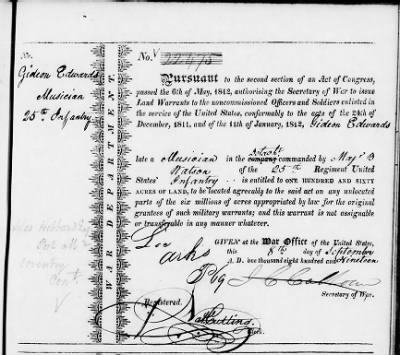 No. 22475
Gideon Edwards
Musician
25th Infantry
WAR DEPARTMENT.
Pursuant to the second section of an Act of Congress,
passed the 6th of May, 1812, authorising the Secretary of War to issue
Land Warrants to the noncommissioned Officers and Soldiers enlisted in
the service of the United States, conformably to the acts of the 24th of
December, 1811, and of the 11th of January, 1812, Gideon Edwards
late a Musician in the company commanded by Maj'r B
Watson of the 25th Regiment United
States' Infantry is entitled to ONE HUNDRED AND SIXTY
ACRES OF LAND, to be located agreeably to the said act on any unlocated
parts of the six millions of acres appropriated by law for the original
grantees of such military warrants; and this warrant is not assignable
or transferable in any manner whatever.
GIVEN at the War Office of the United States,
this 8th day of September
A. D. one thousand eight hundred and Nineteen
J C Calhoun
Secretary of War.
Registered.
Coventry